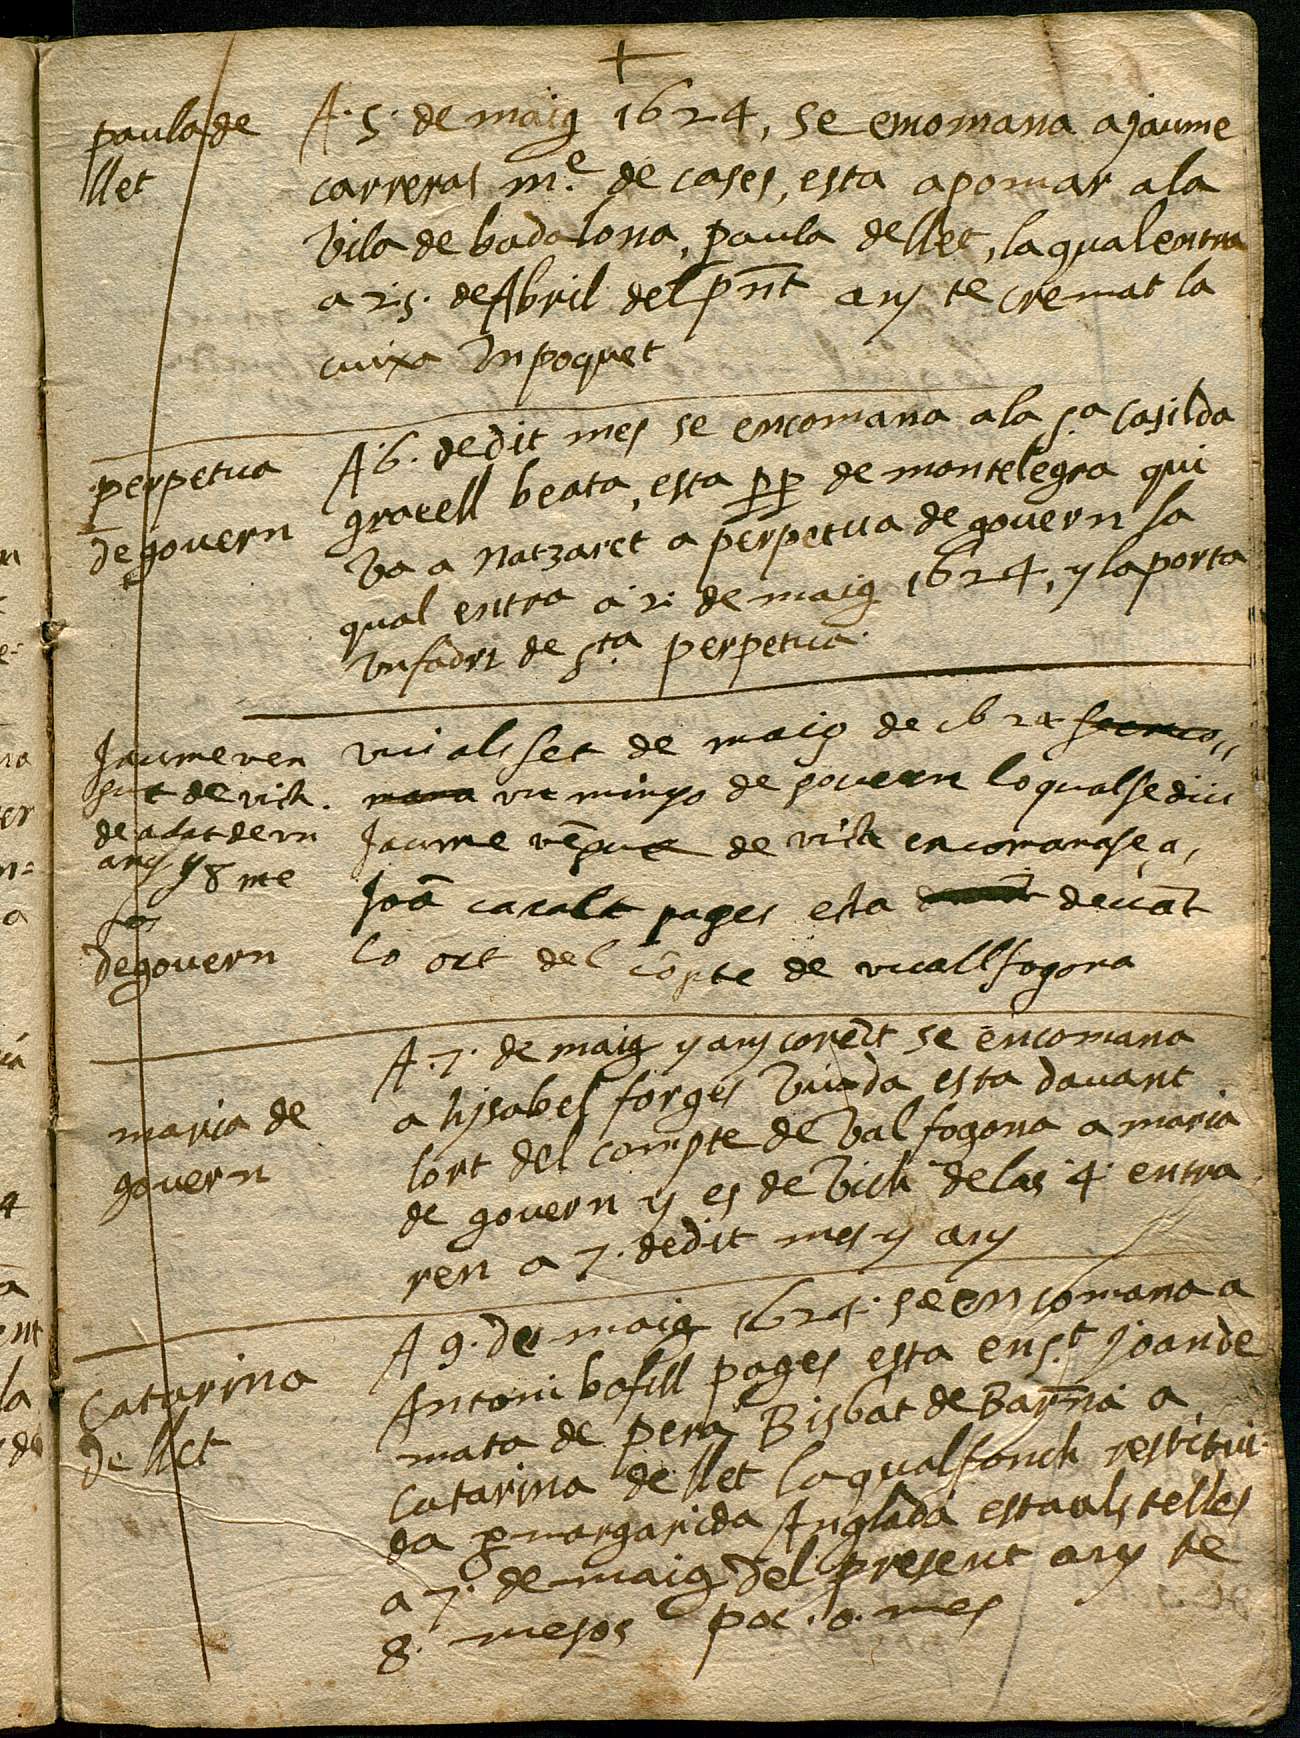 +
paula de
llet
A·5· de maig 1624, se emomana a jaume
carreras m.e de cases, esta a pomar a la
vila de badalona, paula de llet, la qual entra
a 25· de Abril del pnt any te cremat la
cuixa un poquet
perpetua
de govern
A·6· de dit mes se encomana a la s.a casilda
gratell beata, esta pp de montelegra qui
va a natzaret a perpetua de govern la
qual entra a·2· de maig 1624, y la porta
un fadri de s.ta perpetua·
Jaume ven
sut de vich·
de adat de vn
any y 8 me
sos
de govern
vui als set de maig de 1624 se enco,,
mana vn minyo de govern lo qual se diu
Jaume vēsut de vich encomanase, a,
Joā casals pages esta devāt
lo ort del cōpte de vuallfogona
maria de
govern
A·7· de maig y any corēt se encomana
a hysabel forges viuda esta davant
lort del compte de valfogona a maria
de govern y es de vich de las ·4· entra
ren a 7· de dit mes y any
Catarina
de llet
A 9· de maig 1624· se encomana a
Antoni bofill pages esta en s.t joan de
mata de pera Bisbat de Barna a
Catarina de llet la qual fonch restitui
da p margarida Anglada esta als telles
a 7· de maig del present any te
8· mesos poc·o·mes